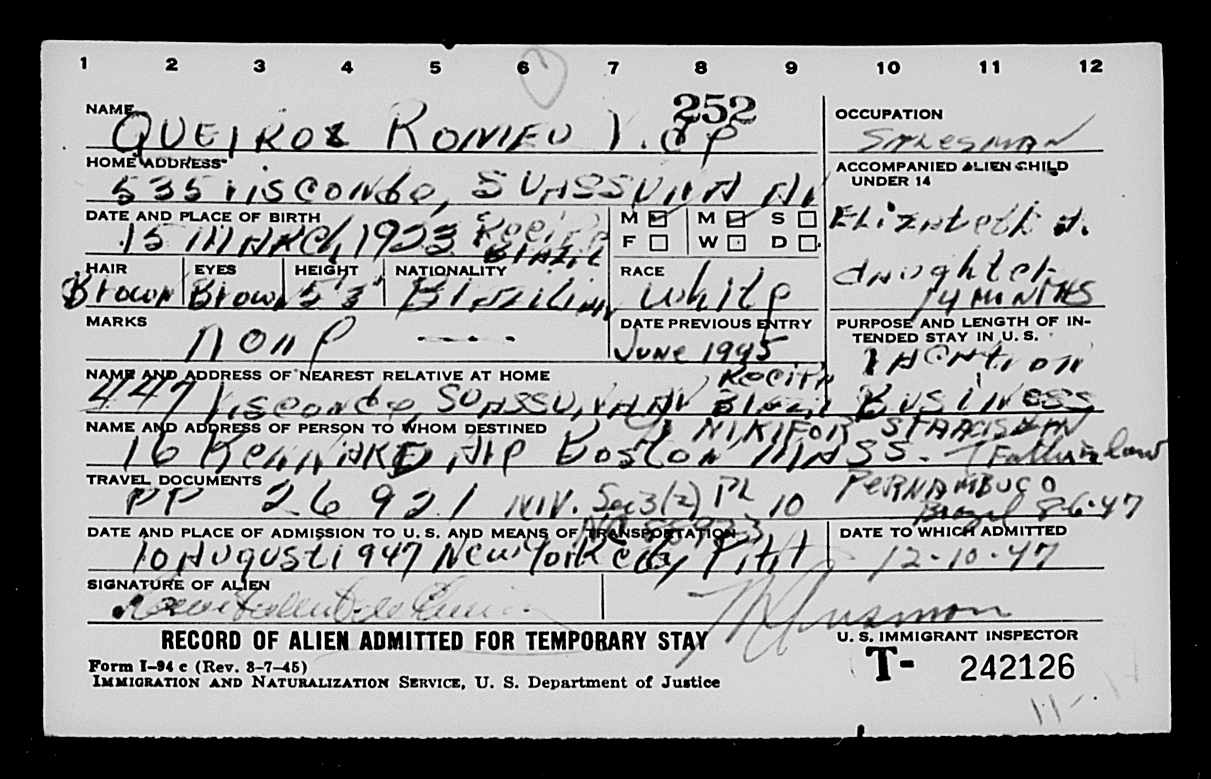 1 2 3 4 5 6 7 8 9 10 11 12
252
NAME
QUEIROZ ROMEU V. de
HOME ADDRESS
535 Visconde, SUASSUNA AV
DATE AND PLACE OF BIRTH
15 MARCH, 1923 Recife
BRAZIL
M F
M S
W D
HAIR
Brown
EYES
Brown
HEIGHT
5'3"
NATIONALITY
Brazilian
RACE
White
MARKS
none
DATE PREVIOUS ENTRY
JUNE 1945
NAME AND ADDRESS OF NEAREST RELATIVE AT HOME
447 Visconde, SUASSUNA AV Recife Brazil
NAME AND ADDRESS OF PERSON TO WHOM DESTINED
NIKIFOR
16 AVE Boston MASS. (Father in law
TRAVEL DOCUMENTS
PP 26921 NIV. Sec 3(2) PL 10 PERNAMBUCO
Brazil 8-6-47
DATE AND PLACE OF ADMISSION TO U. S. AND MEANS OF TRANSPORTATION
10 August 1947 New York City,
SIGNATURE OF ALIEN
OCCUPATION
SALESMAN
ACCOMPANIED ALIEN CHILD
UNDER 14
Elizabeth A.
daughter
14 MONTHS
PURPOSE AND LENGTH OF IN-
TENDED STAY IN U. S.
VACATION
BUSINESS
DATE TO WHICH ADMITTED
12-10-47
U. S. IMMIGRANT INSPECTOR
RECORD OF ALIEN ADMITTED FOR TEMPORARY STAY
Form I-94 c (Rev. 8-7-45)
IMMIGRATION AND NATURALIZATION SERVICE, U. S. Department of Justice
T- 242126